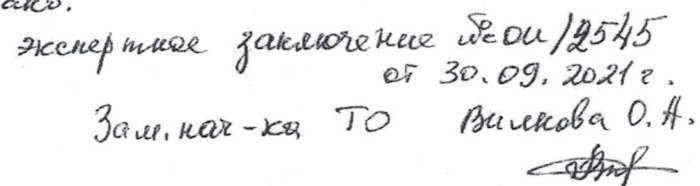 экспертное заключение № ОИ/2545
от 30.09.2021 г.
Зам. нач-ка ТО Вилкова О. А.